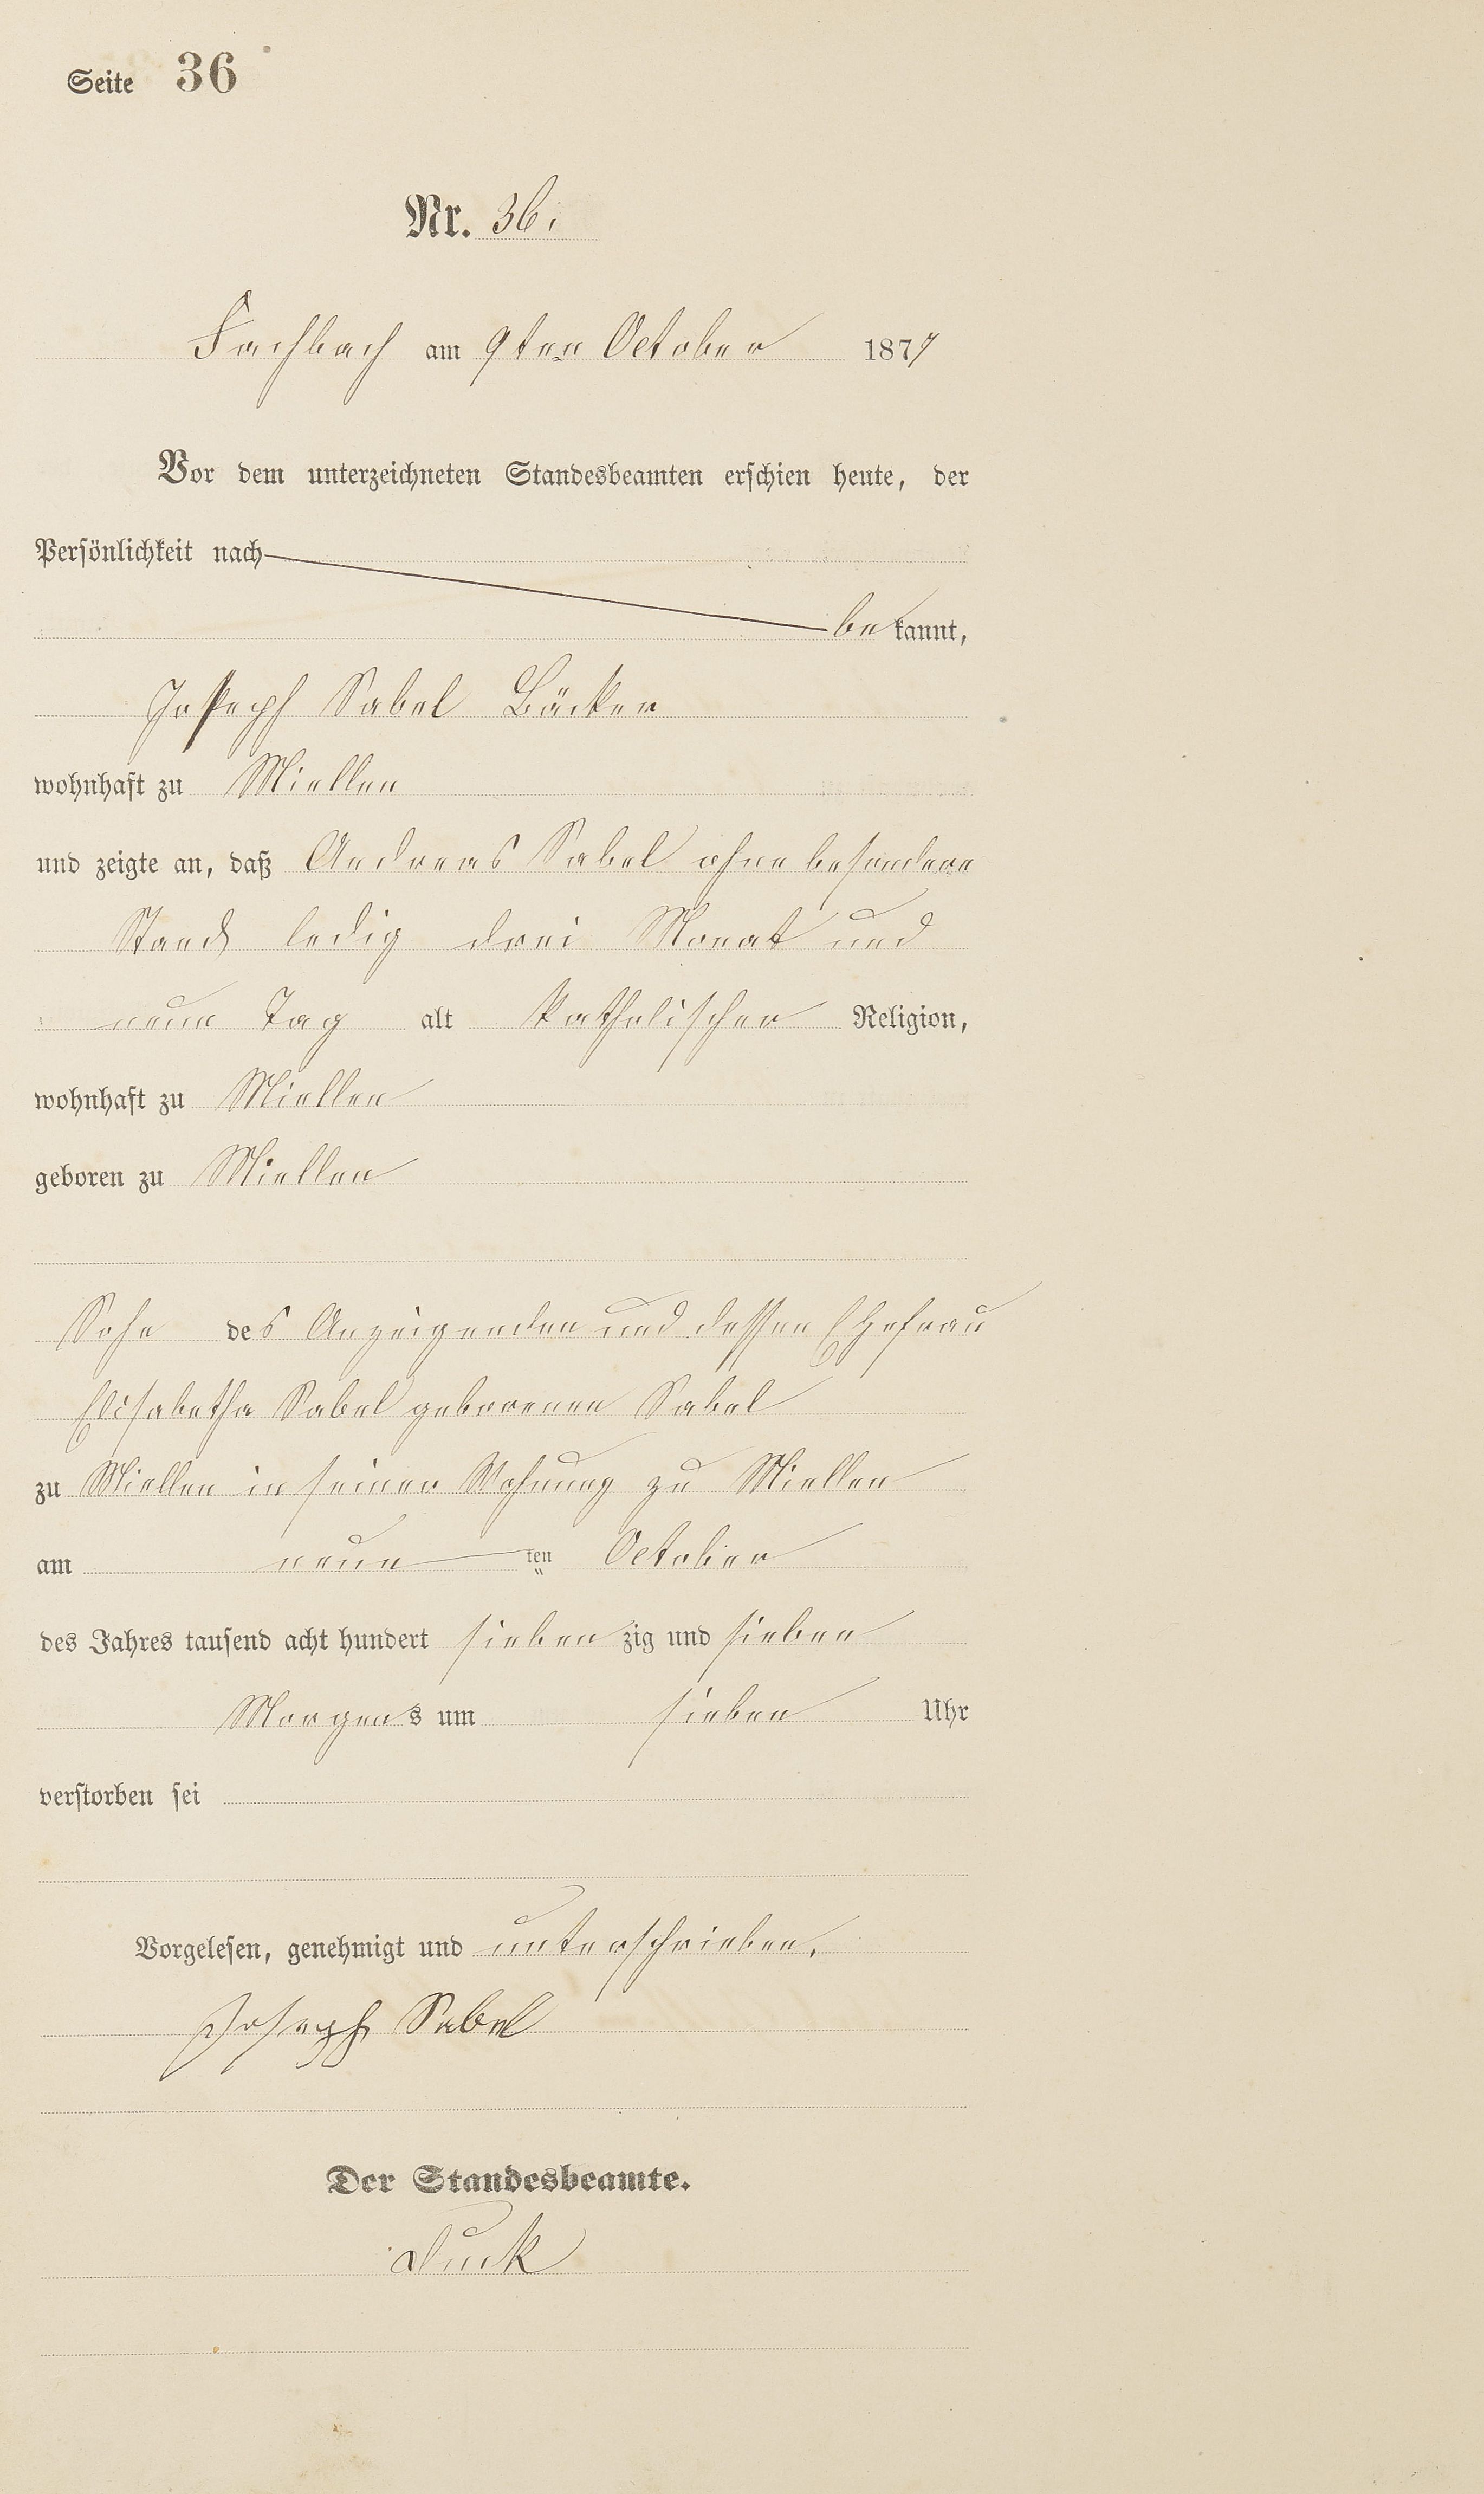 Seite 36
Nr. 36.
Fachbach am 9ten October 1877
Vor dem unterzeichneten Standesbeamten erschien heute, der
Persönlichkeit nach
bekannt,
Joseph Sabel Bäcker
wohnhaft zu Miellen
und zeigte an, daß Andreas Sabel ohne besondere
Stand ledig drei Monat und
neun Tag alt katholischer Religion,
wohnhaft zu Miellen
geboren zu Miellen
Sohn des Anzeigenden und dessen Ehefrau
Elisabetha Sabel geborenen Sabel
zu Miellen in seiner Wohnung zu Miellen
am neun ten October
des Jahres tausend acht hundert siebenzig und sieben
Morgens um sieben Uhr
verstorben sei
Vorgelesen, genehmigt und unterschrieben.
Joseph Sabel
Der Standesbeamte.